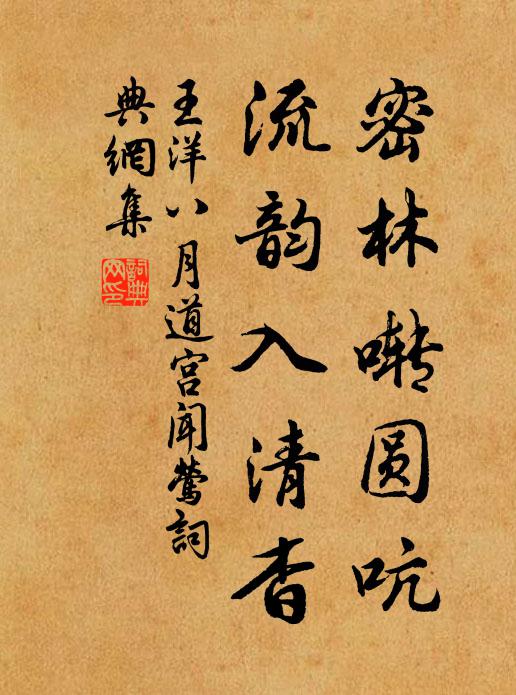 密林啭圆吭
流韵入清香
王洋八月道宫闻莺詞
典網集
詞典网印